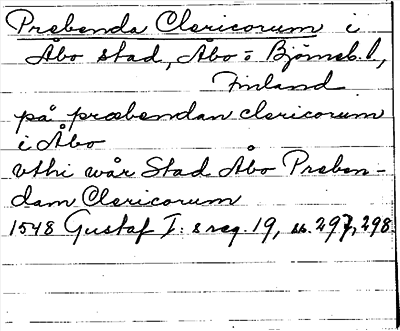 Prebenda Clericorum i
Åbo stad, Åbo- o Björneb. l,
Finland
på præbendan clericorum
i Åbo
vthi wår Stad Åbo Preben-
dam Clericorum
1548 Gustaf I:s reg. 19, ss. 297, 298.